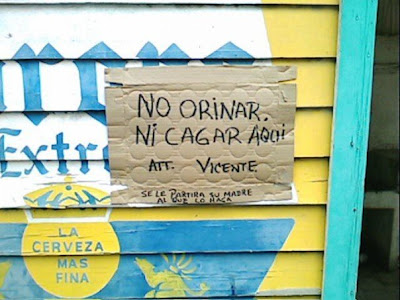 Extra
NO ORINAR.
NI CAGAR AQUI
ATT. VICENTE
SE LE PARTIRA SU MADRE
AL QUE LO HAGA
LA
CERVEZA
MAS
FINA